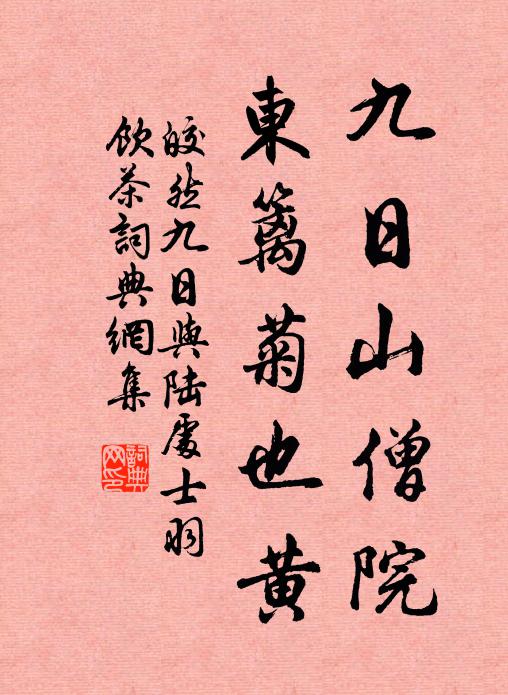 九日山僧院
東籬菊也黄
皎然九日與陸處士羽
飲茶詞典網集
詞典
网印